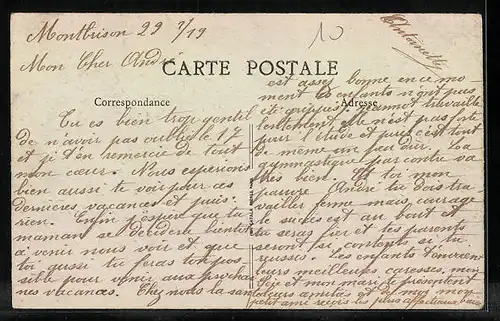 Montbrison 29 7/19
Mon Cher André
CARTE POSTALE
Correspondance
Adresse
10
Tu es bien trop gentil
de n'avoir pas oublié le 17
et je t'en remercie de tout
mon cœur. Nous esperions
bien aussi te voir pour ces
dernières vacances et puis
rien. Enfin j'espère que ta
maman se decidera bientôt
à venir nous voir et que
toi aussi tu feras ton pos
sible pour venir aux prochai
nes vacances. Chez nous la santé
est assez bonne en ce mo
ment les enfants n'ont pas
été grippés. travaille
lentement elle n'est pas forte
pour l'étude et puis c'est tout
de même un peu dur. La
gymnastique par contre va
très bien. Et toi mon
pauvre André tu dois tra
vailler ferme mais courage
le succès est au bout et
tu seras fier et tes parents
seront si contents si tu
reussis. Les enfants t'envoient
leurs meilleures caresses, mon
et mon mari te présentent
leurs amitiés et de moi mon
petit ami reçois les plus affectueux baisers